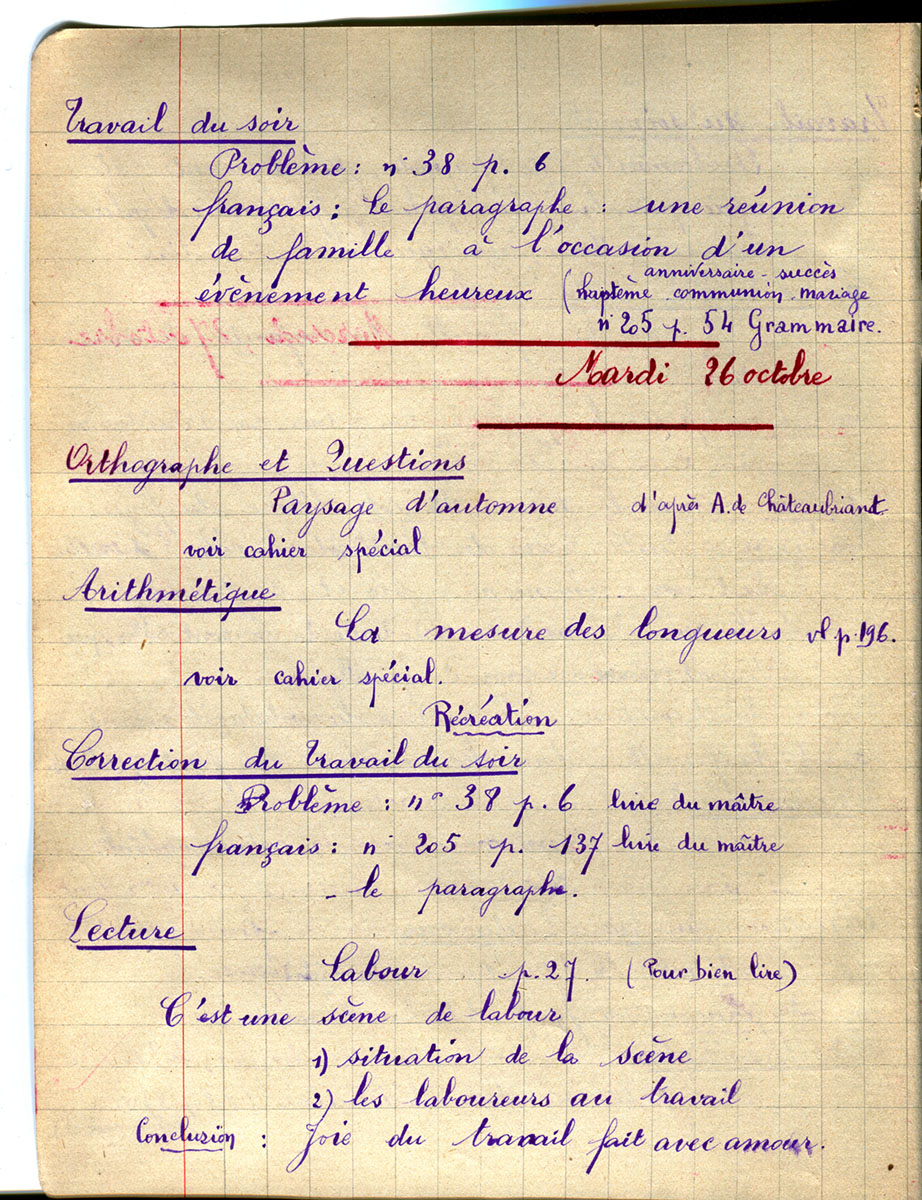 Travail du soir
Problème : n° 38 p. 6
français : Le paragraphe : une réunion
de famille à l'occasion d'un
anniversaire - succès
évènement heureux (baptême communion mariage
n° 205 p. 54 Grammaire.
Mardi 26 octobre
Orthographe et Questions
Paysage d'automne d'après A. de Châteaubriant
voir cahier spécial
Arithmétique
La mesure des longueurs p. 196.
voir cahier spécial.
Récréation
Correction du travail du soir
Problème : n° 38 p. 6 livre du maître
français : n° 205 p. 137 livre du maître
- le paragraphe.
Lecture
Labour p. 27. (Pour bien lire)
C'est une scène de labour
1) situation de la scène
2) les laboureurs au travail
Conclusion : Joie du travail fait avec amour.